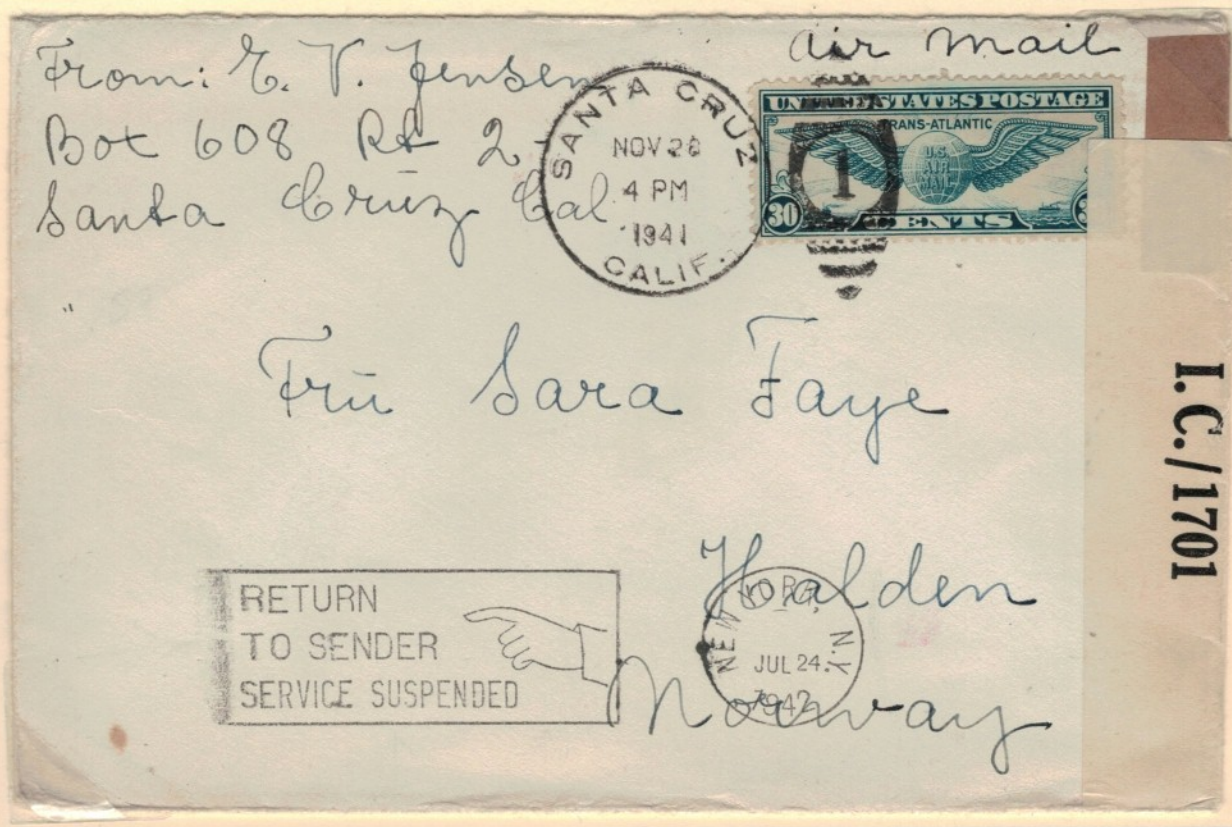 Air Mail
From: E. V. Jensen
Box 608 Rt 2
Santa Cruz Cal
SANTA CRUZ
NOV 28
4 PM
1941
CALIF.
UNITED STATES POSTAGE
TRANS-ATLANTIC
U.S.
AIR
MAIL
1
30 CENTS
Frū Sara Faye
Halden
Norway
RETURN
TO SENDER
SERVICE SUSPENDED
NEW YORK, N.Y.
JUL 24
1942
I.C./1701